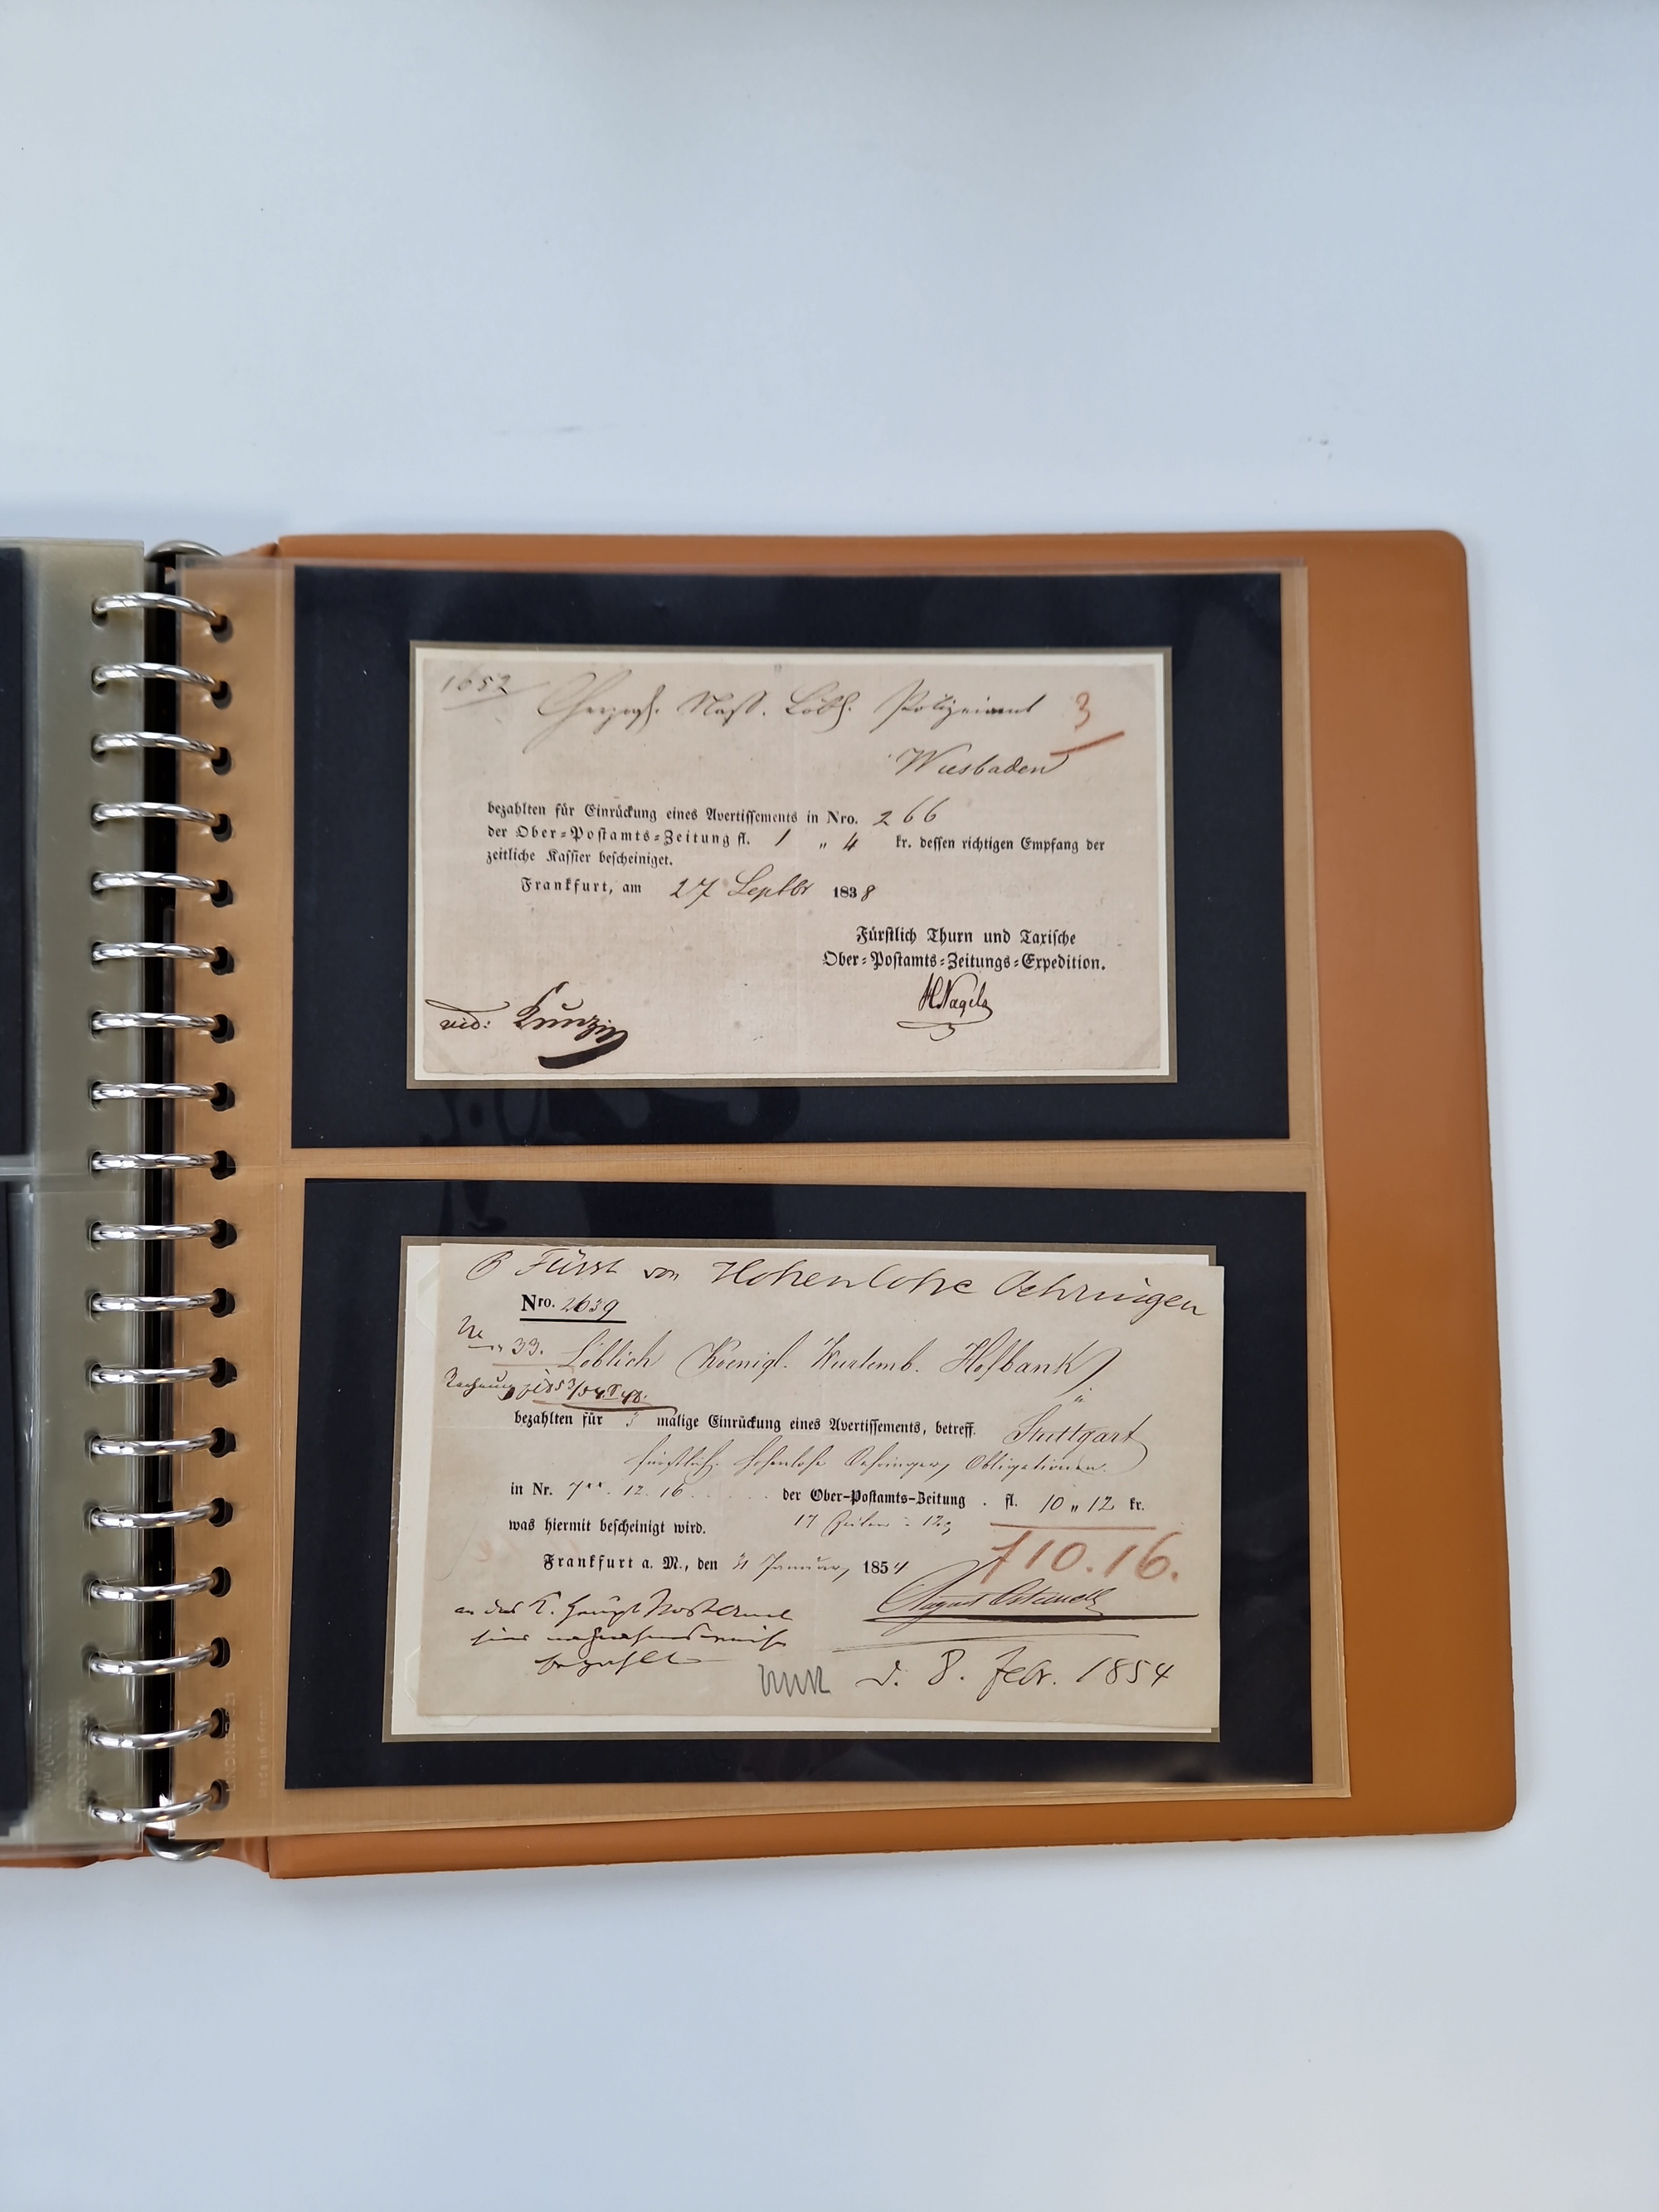 1652
Herzogl. Nass. Löbl. Polizeiamt 3
Wiesbaden
bezahlten für Einrückung eines Avertissements in Nro. 266
der Ober-Postamts-Zeitung fl. 1 „ 4 kr. dessen richtigen Empfang der
zeitliche Kassier bescheiniget.
Frankfurt, am 27 Septbr 1838
Fürstlich Thurn und Taxische
Ober-Postamts-Zeitungs-Expedition.
HNagel
vid:
Fürst von Hohenlohe Oehringen
Nro. 2639
33. Löblich Koenigl. Würtemb. Hofbank
bezahlten für 3 malige Einrückung eines Avertissements, betreff. Stuttgart
fürstlich. Hohenlohe Oehringer, Obligationen.
in Nr. 7 . 12. 16 . . . . . der Ober-Postamts-Zeitung . fl. 10 „ 12 kr.
was hiermit bescheinigt wird. 17 Zeilen
Frankfurt a. M., den 21 Januar, 1854 f 10.16.
August
an das K. Haupt Postamt
bezahlt
d. 8. Febr. 1854